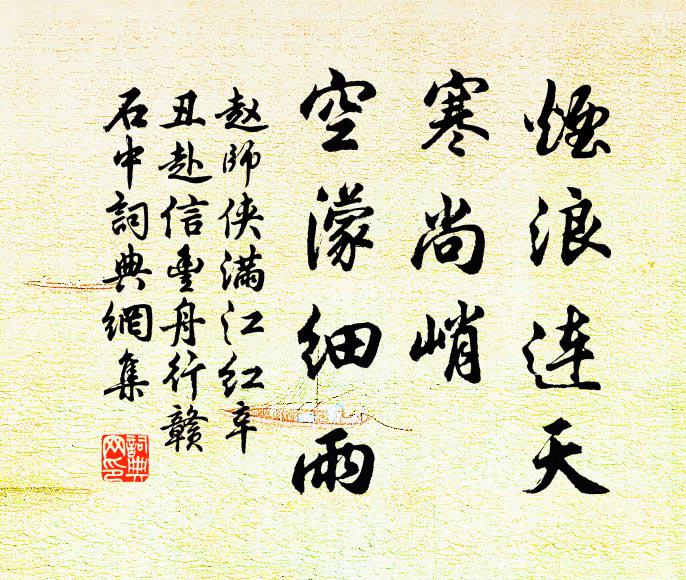 煙浪连天
寒尚峭
空濛细雨
赵師侠满江红辛
丑赴信豐舟行赣
石中詞典網集
詞典
网印